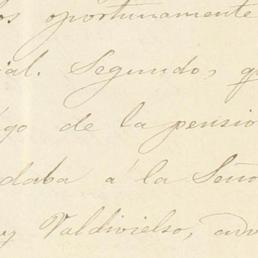 los oportunamente
ial. Segundo, q
go de la pensio
daba á la Seño
y Valdivielso, adv